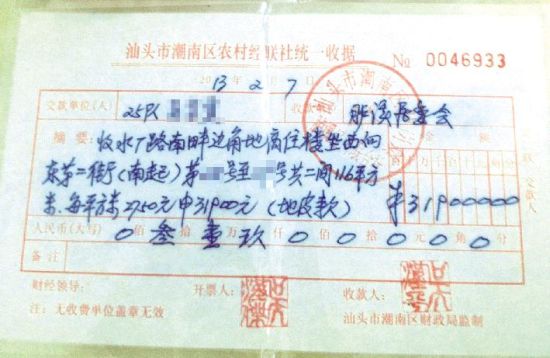 汕头市潮南区农村经联社统一收据
№ 0046933
2013 2 7
交款单位(人) 25队 收款
摘要: 收水厂路南畔边角地商住楼坐西向
东第二街(南起)第 号至 号共二间116平方
米.每平方米2750元申319000元(地皮款) ¥31900000
人民币(大写) 0佰叁拾壹万玖仟0佰0拾0元0角0分
备注
财经领导: 开票人: 收款人:
注: 无收费单位盖章无效 汕头市潮南区财政局监制